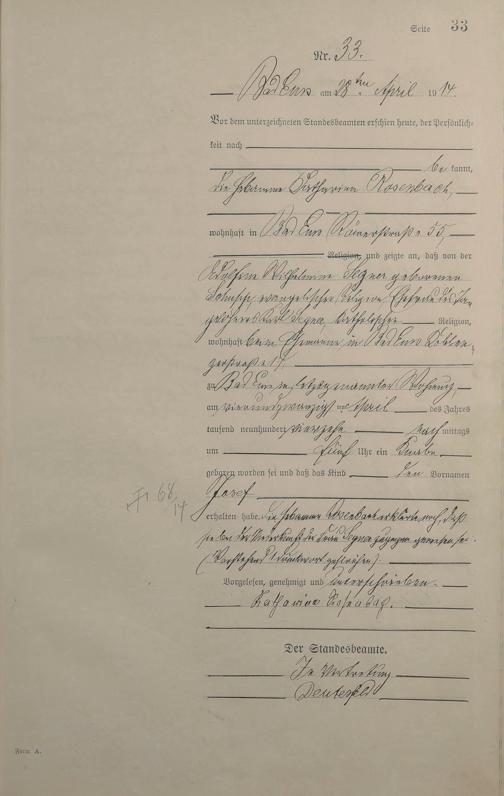 Seite 33
Nr. 33.
Bad Ems am 28ten April 1914.
Vor dem unterzeichneten Standesbeamten erschien heute, der Persönlich-
keit nach
bekannt,
die Hebamme Katharina Rosenbach,
wohnhaft in Bad Ems Römerstraße 55,
Religion, und zeigte an, daß von der
Wilhelmine Segna geborenen
evangelischer Religion Ehefrau des
Karl Segna, katholischer Religion,
wohnhaft bei ihrem Ehemanne in Bad Ems Koblen-
zerstraße 17,
zu Bad Ems in letztgenannter Wohnung,
am vierundzwanzigsten April des Jahres
tausend neunhundert vierzehn nachmittags
um fünf Uhr ein Knabe
geboren worden sei und daß das Kind den Vornamen
Josef
68/14
erhalten habe. Die Hebamme Rosenbach erklärte noch, daß
sie bei der Niederkunft der Frau Segna zugegen gewesen sei.
(Vorstehend 1 Druckwort gestrichen).
Vorgelesen, genehmigt und unterschrieben.
Katharina Rosenbach.
Der Standesbeamte.
In Vertretung
Form A.